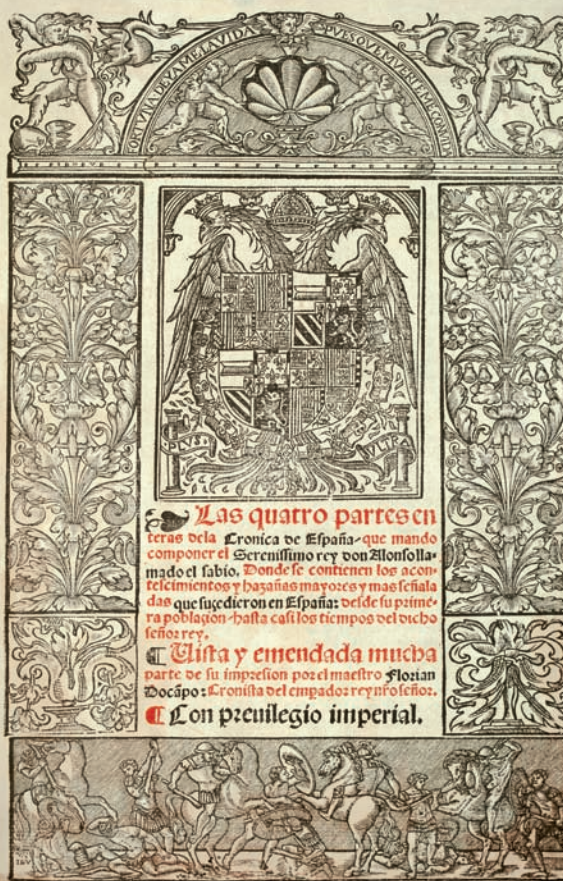 FORTVNA DEXAME LA VIDA PVES QVE MVERTE ME COMVIDA
PLVS VLTRA
Las quatro partes en
teras dela Cronica de España. que mando
componer el Serenissimo rey don Alonso lla-
mado el sabio. Donde se contienen los acon-
tescimientos y hazañas mayores y mas señala
das que suçedieron en España: desde su prime-
ra poblaçion hasta casi los tiempos del dicho
señor rey.
¶ Uista y emendada mucha
parte de su impresion por el maestro Florian
Docãpo: Cronista del empador rey nr̃o señor.
¶ Con preuilegio imperial.